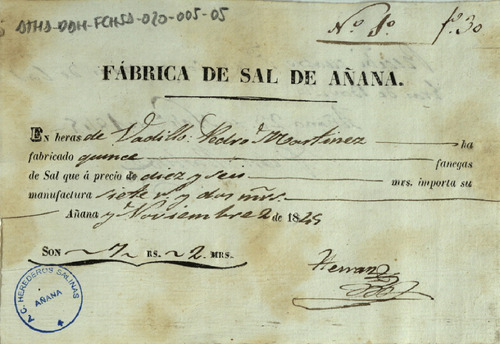 ATHA-DAH-FCHSA-020-005-05
Nº 1º fº 30
FÁBRICA DE SAL DE AÑANA.
EN heras de Vadillo: Pedro Martinez ha
fabricado quince fanegas
de Sal que á precio de diez y seis mrs. importa su
manufactura siete rs y dos mrs.
Añana y Noviembre 2 de 18
SON 7 RS. 2 MRS.
Herran
A. C. HEREDEROS SALINAS
AÑANA